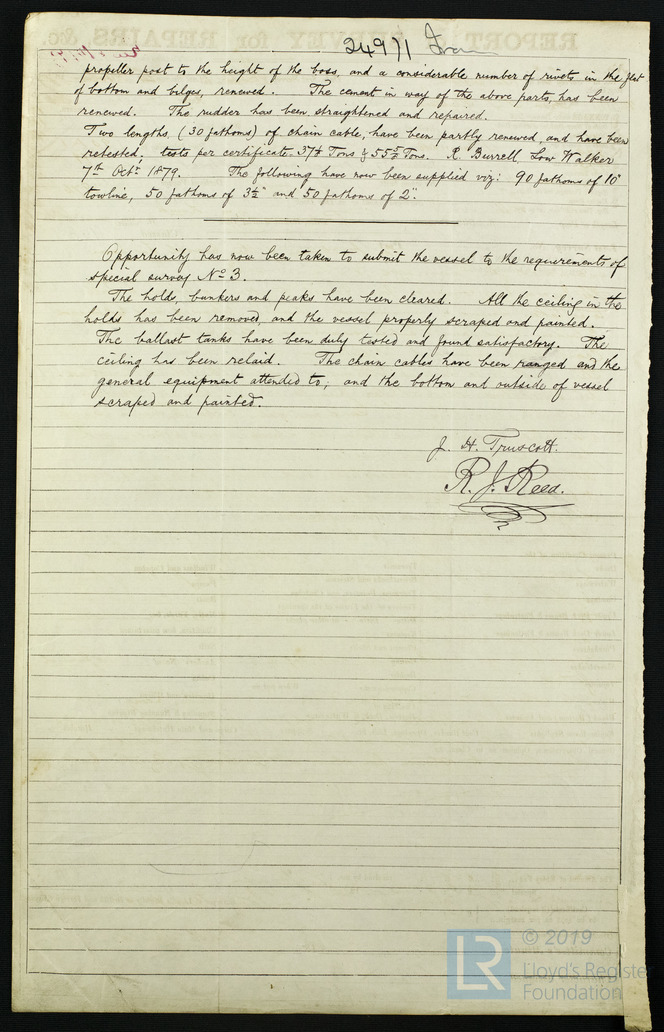 24971 Iron
propeller post to the height of the boss, and a considerable number of rivets in the flat
of bottom and bilges, renewed. The cement in way of the above parts, has been
renewed. The rudder has been straightened and repaired.
Two lengths, (30 fathoms) of chain cable, have been partly renewed, and have been
retested; tests per certificate. Tons & Tons. R. Burrell Low Walker
7th Octr 1879. The following have now been supplied viz: 90 fathoms of 10"
towline, 50 fathoms of 3½" and 50 fathoms of 2".
Opportunity has now been taken to submit the vessel to the requirements of
special survey No 3.
The holds, bunkers and peaks have been cleared. All the ceiling in the
holds has been removed, and the vessel properly scraped and painted.
The ballast tanks have been duly tested and found satisfactory. The
ceiling has been relaid. The chain cables have been ranged and the
general equipment attended to; and the bottom and outside of vessel
scraped and painted.
J. H. Truscott.
R. J. Reed.
© 2019
LR
Lloyd's Register
Foundation